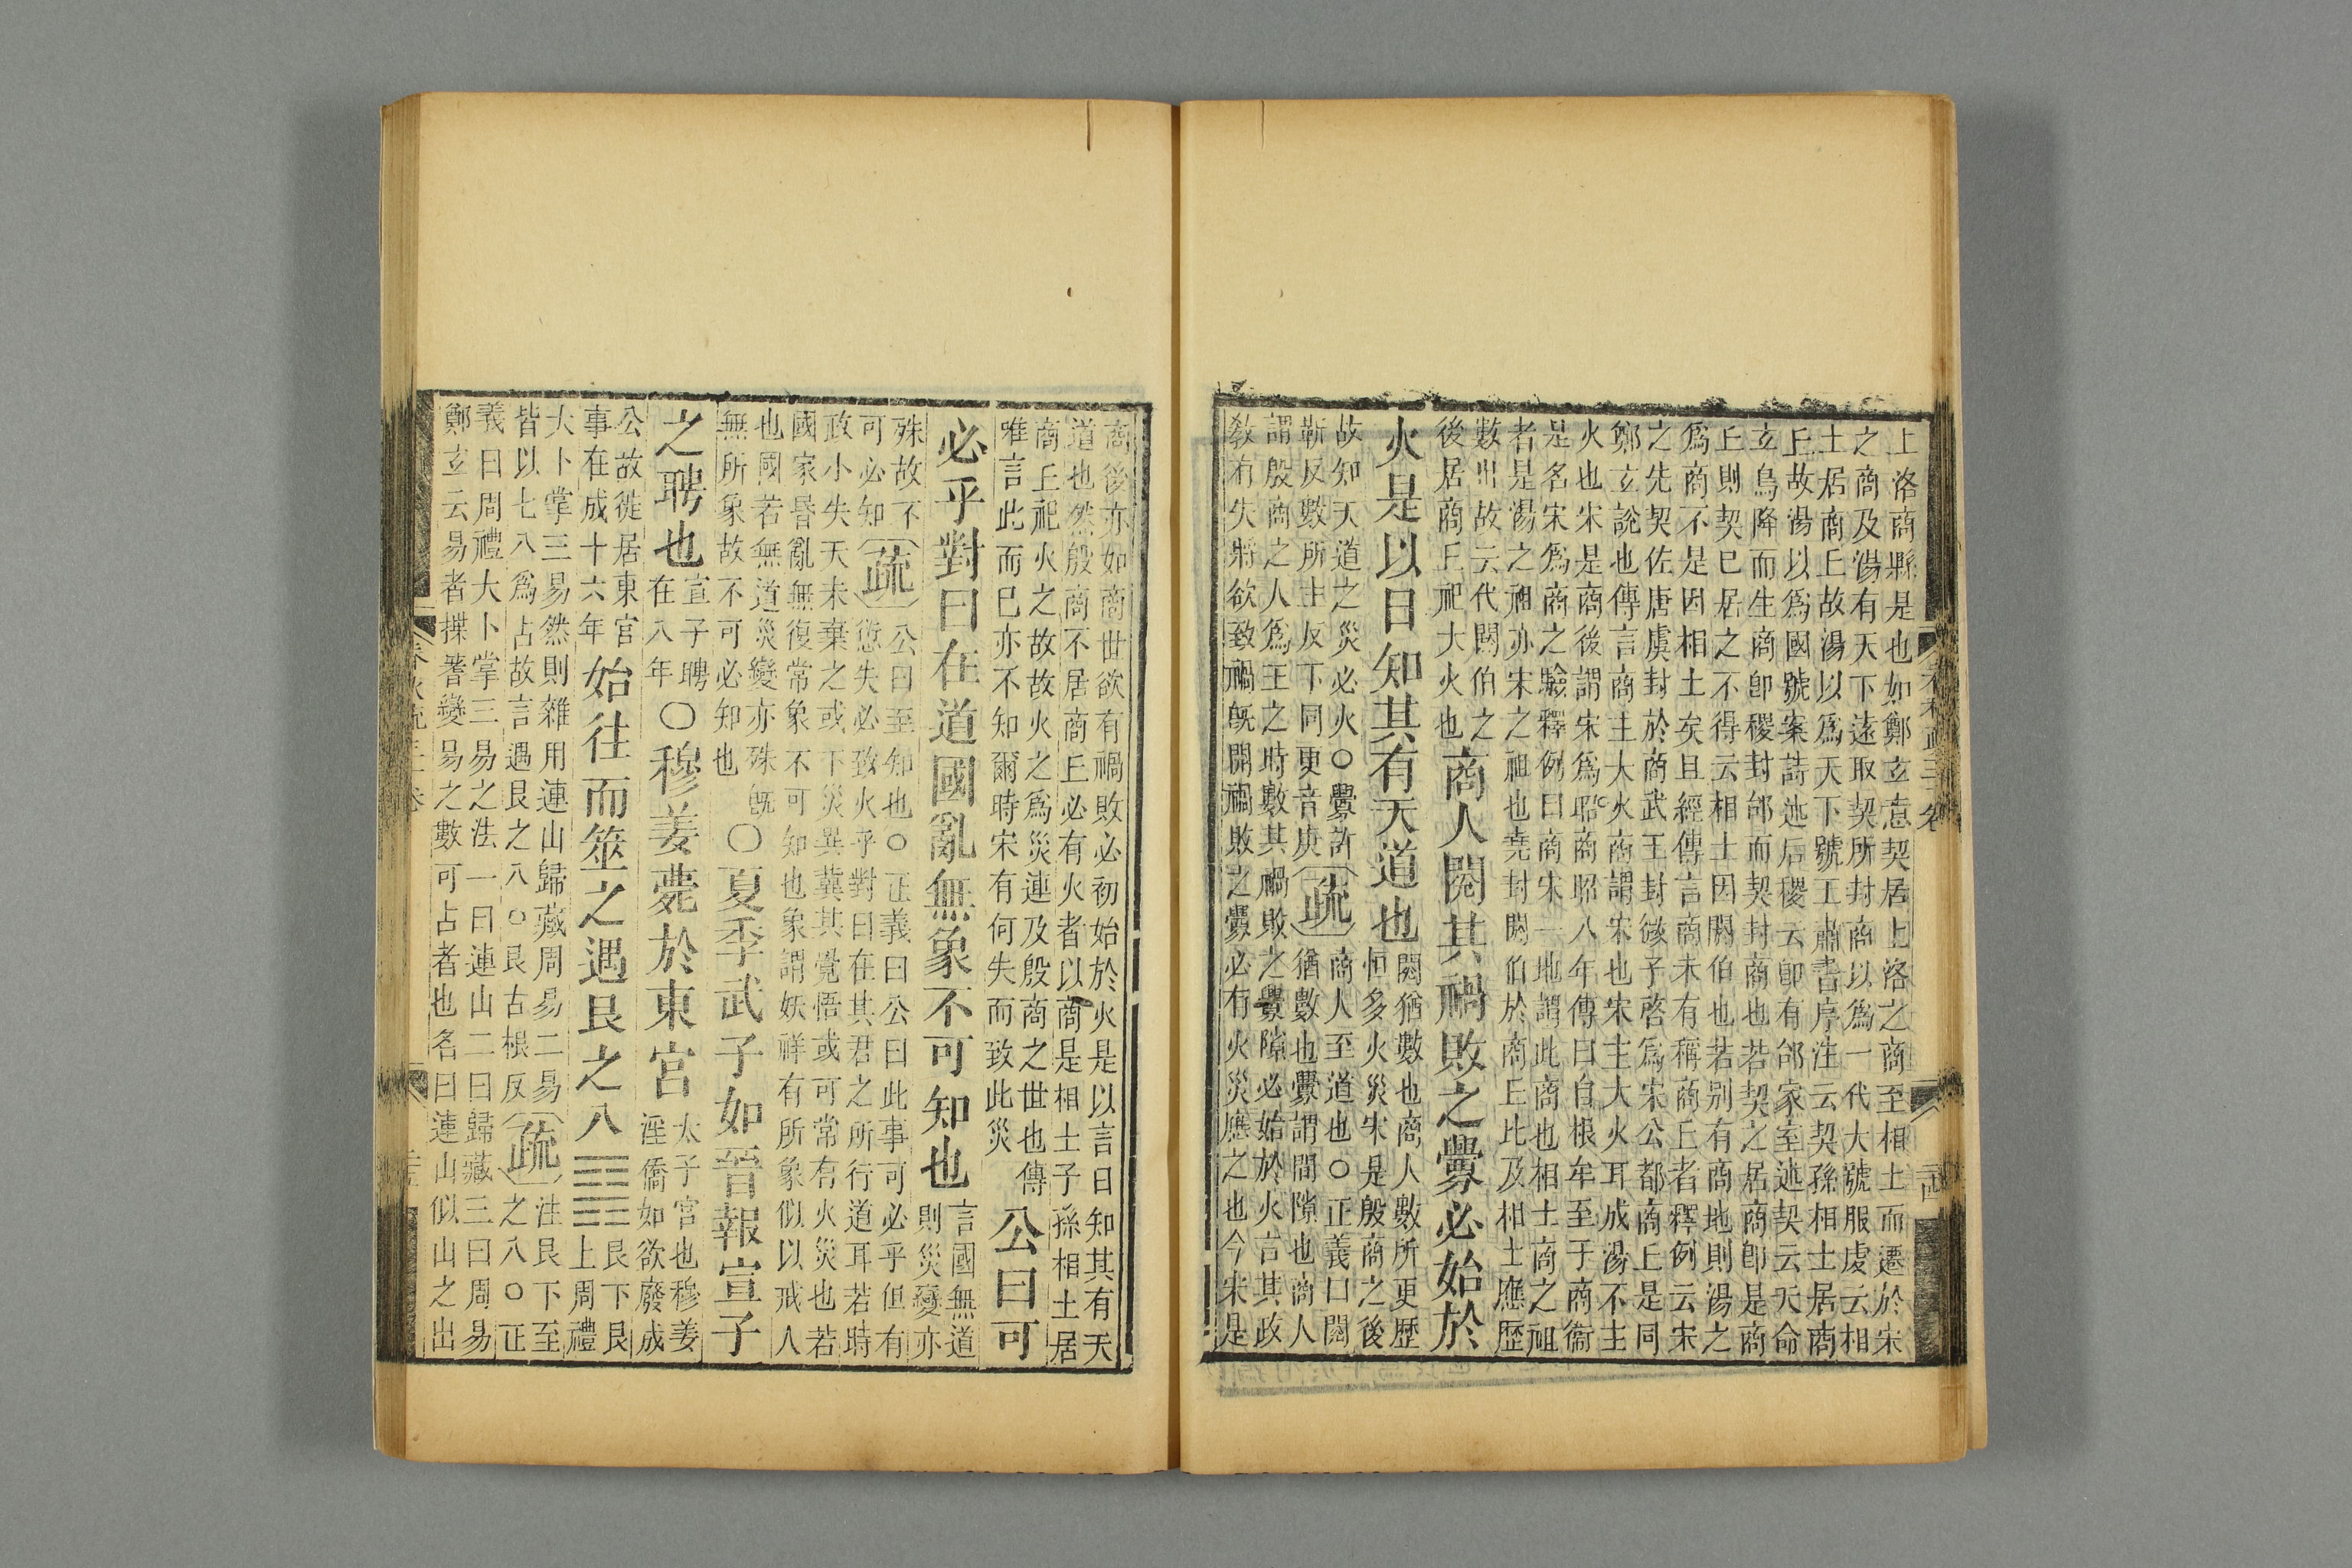 上洛商縣是也如鄭玄意契居上洛之商至相土而遷於宋
之商及湯有天下遠取契所封商以爲一代大號服虔云相
土居商丘故湯以爲天下號王肅書序注云契孫相土居商
丘故湯以爲國號案詩述后稷云卽有邰家室述契云天命
玄鳥降而生商卽稷封邰而契封商也若契之居商卽是商
丘則契已居之不得云相土因閼伯也若别有商地則湯之
爲商不是因相土矣且經傳言商未有稱商丘者釋例云宋
之先契佐唐虞封於商武王封微子啓爲宋公都商丘是同
鄭玄說也傳言商主大火商謂宋也宋主大火耳成湯不主
火也宋是商後謂宋爲商昭八年傳曰自根牟至于商衞
是名宋爲商之驗釋例曰商宋一地謂此商也相土商之祖
者是湯之祖亦宋之祖也堯封閼伯於商丘比及相土應歷
數世故云代閼伯之
後居商丘祀大火也商人閱其禍敗之釁必始於
火是以日知其有天道也閱猶數也商人數所更歷
恒多火災宋是殷商之後
故知天道之災必火○釁許
靳反數所主反下同更音庚疏商人至道也○正義曰閱
猶數也釁謂間隙也商人
謂殷商之人爲王之時數其禍敗之釁隙必始於火言其政
敎有失將欲致禍旣開禍敗之釁必有火災應之也今宋是
商後亦如商世欲有禍敗必初始於火是以言日知其有天
道也然殷商不居商丘必有火者以商是相土子孫相土居
商丘祀火之故故火之爲災連及殷商之世也傳
唯言此而已亦不知爾時宋有何失而致此災公曰可
必乎對曰在道國亂無象不可知也言國無道
則災變亦
殊故不
可必知疏公曰至知也○正義曰公曰此事可必乎但有
愆失必致火乎對曰在其君之所行道耳若時
政小失天未棄之或下災異冀其覺悟或可常有火災也若
國家昏亂無復常象不可知也象謂妖祥有所象似以戒人
也國若無道災變亦殊旣
無所象故不可必知也○夏季武子如晉報宣子
之聘也宣子聘
在八年○穆姜薨於東宮太子宮也穆姜
淫僑如欲廢成
公故徙居東宮
事在成十六年始往而筮之遇艮之八䷳艮下艮
上周禮
大卜掌三易然則雜用連山歸藏周易二易
皆以七八爲占故言遇艮之八○艮古根反疏注艮下至
之八○正
義曰周禮大卜掌三易之法一曰連山二曰歸藏三曰周易
鄭玄云易者揲蓍變易之數可占者也名曰連山似山之出